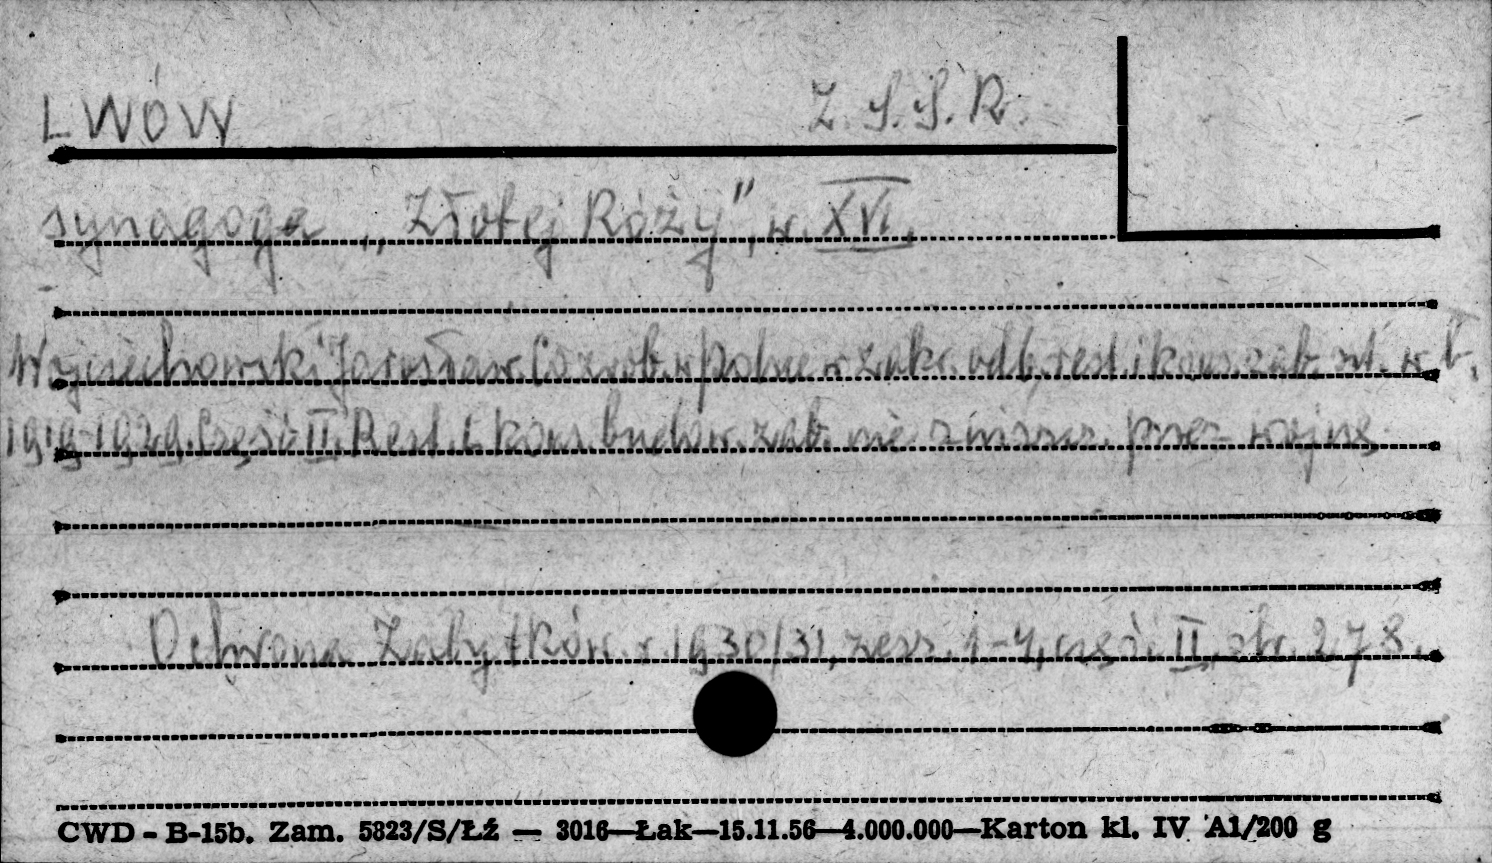 LWÓW
Z.S.S.R.
synagoga „Złotej Róży", w. XVI.
Wojciechowski Jarosław. Co zrob. w Polsce w zakr. odb. rest. i kons. zab. szt. w l.
1919-1929. Część II. Rest. i kons. budow. zab. nie zniszcz. przez wojnę.
Ochrona Zabytków. r. 1930/31, zesz. 1-4, część II, str. 278.
CWD - B-15b. Zam. 5823/S/Łź — 3016—Łak—15.11.56—4.000.000—Karton kl. IV A1/200 g